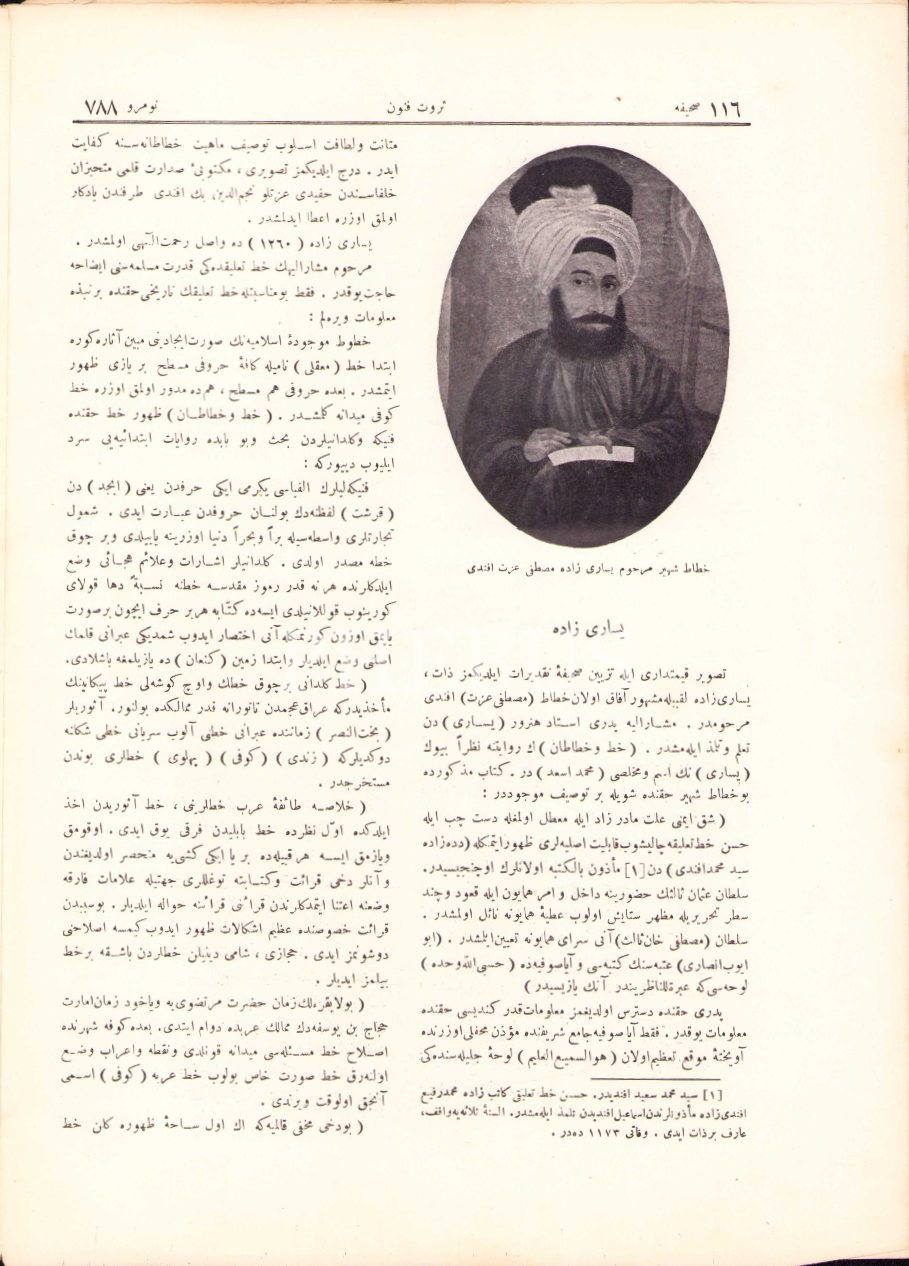 ١١٦ صحیفه
ثروت فنون
نومرو ٧٨٨
خطاط شهیر مرحوم یساری زاده مصطفی عزت افندی
یساری زاده
تصویر قیمتداری ایله تزیین صحیفهٔ تقدیرات ایلدیكمز ذات ،
یساری‌زاده لقبیله مشهور آفاق اولان خطاط (مصطفی عزت) افندی
مرحومدر . مشارالیه پدری استاد هنرور (یساری) دن
تعلم وتلمذ ایله‌مشدر . ( خط وخطاطان)ك روایتنه نظراً بیوك
(یساری) نك اسم ومخلصی ( محمد اسعد ) در . كتاب مذكورده
بوخطاط شهیر حقنده شویله بر توصیف موجوددر :
( شق ایمنی علت مادر زاد ایله معطل اولمغله دست چپ ایله
حسن خط تعلیقه چالیشوب قابلیت اصلیه‌لری ظهور ایتمكله (دده‌زاده
سید محمد افندی ) دن [١] مأذون بالكتبه اولانلرك اوچنجیسیدر.
سلطان عثمان ثالثك حضورینه داخل و امر همایون ایله قعود وچند
سطر تحریریله مظهر ستایش اولوب عطیهٔ همایونه نائل اولمشدر .
سلطان (مصطفی خان ثالث) آنی سرای همایونه تعیین ایلمشدر . (ابو
ایوب انصاری) عتبه‌سنك كتبه‌سی و آیاصوفیه‌ده ( حسبی الله وحده )
لوحه‌سی كه عبرة للناظریندر آنك یازیسیدر )
پدری حقنده دسترس اولدیغمز معلومات قدر كندیسی حقنده
معلومات یوقدر . فقط آیاصوفیه جامع شریفنده مؤذن محفلی اوزرنده
آویختهٔ موقع تعظیم اولان ( هو السمیع العلیم ) لوحهٔ جلیله‌سنده‌كی
[١] سید محمد سعید افندیدر. حسن خط تعلیقی كاتب زاده محمد رفیع
افندی‌زاده مأذونلرندن اسماعیل افندیدن تلمذ ایله‌مشدر. السنهٔ ثلاثه‌یه واقف،
عارف بر ذات ایدی . وفاتی ١١٧٣ ده‌در .
متانت ولطافت اسلوب توصیف ماهیت خطاطانه‌سنه كفایت
ایدر . درج ایلدیكمز تصویری ، مكتوبیٔ صدارت قلمی متحیزان
خلفاسندن حفیدی عزتلو نجم‌الدین بك افندی طرفندن یادكار
اولمق اوزره اعطا ایدلمشدر .
یساری زاده ( ١٢٦٠ ) ده واصل رحمت الٓهی اولمشدر .
مرحوم مشارالیهك خط تعلیقده‌كی قدرت مسلمه‌سنی ایضاحه
حاجت یوقدر . فقط بومناسبتله خط تعلیقك تاریخی حقنده بر نبذه
معلومات ویره‌لم :
خطوط موجودهٔ اسلامیه‌نك صورت ایجادینی مبین آثاره كوره
ابتدا خط ( معقلی ) نامیله كافهٔ حروفی مسطح بر یازی ظهور
ایتمشدر . بعده حروفی هم مسطح ، هم‌ده مدور اولمق اوزره خط
كوفی میدانه كلمشدر . ( خط وخطاطان ) ظهور خط حقنده
فنیكه وكلدانیلردن بحث وبو بابده روایات ابتدائیه‌یی سرد
ایلیوب دییوركه :
فنیكه‌لیلرك الفباسی یكرمی ایكی حرفدن یعنی ( ابجد ) دن
( قرشت ) لفظنه‌دك بولنان حروفدن عبارت ایدی . شمول
تجارتلری واسطه‌سیله براً وبحراً دنیا اوزرینه یاییلدی وبر چوق
خطه مصدر اولدی . كلدانیلر اشارات وعلائم هجائی وضع
ایلدكلرنده هر نه قدر رموز مقدسه خطنه نسبةً دها قولای
كورینوب قوللانیلدی ایسه‌ده كتابه هربر حرف ایچون برصورت
یاپمق اوزون كورنمكله آنی اختصار ایدوب شمدیكی عبرانی قلمك
اصلنی وضع ایلدیلر وابتدا زمین (كنعان) ده یازیلمغه باشلادی.
( خط كلدانی برچوق خطك واوچ كوشه‌لی خط پیكانینك
مأخذیدركه عراق عجمدن تا تورانه قدر ممالكده بولنور. آثوریلر
( بخت‌النصر ) زماننده عبرانی خطی آلوب سریانی خطی شكلنه
دوكدیلركه ( زندی ) ( كوفی ) ( پهلوی ) خطلری بوندن
مستخرجدر .
( خلاصه طائفهٔ عرب خطلرینی ، خط آثوریدن اخذ
ایلدكده اوّل نظرده خط بابلیدن فرقی یوق ایدی . اوقومق
ویازمق ایسه هر قبیله‌ده بر یا ایكی كشی‌یه منحصر اولدیغندن
و آنلر دخی قرائت وكتابته توغللری جهتیله علامات فارقه
وضعنه اعتنا ایتمدكلرندن قرائنی قرائنه حواله ایلدیلر . بوسببدن
قرائت خصوصنده عظیم اشكالات ظهور ایدوب كیمسه اصلاحنی
دوشونمز ایدی . حجازی ، شامی دینیلن خطلردن باشقه برخط
بیلمز ایدیلر .
( بولایقره‌لك زمان حضرت مرتضوی‌یه ویاخود زمان امارت
حجاج بن یوسفه‌دك ممالك عربده دوام ایتدی. بعده كوفه شهرنده
اصلاح خط مسئله‌سی میدانه قونلدی ونقطه واعراب وضع
اولنه‌رق خط صورت خاص بولوب خط عربه ( كوفی ) اسمی
آنجق اولوقت ویرلدی .
( بودخی مخفی قالمیه‌كه اك اول ساحهٔ ظهوره كلن خط